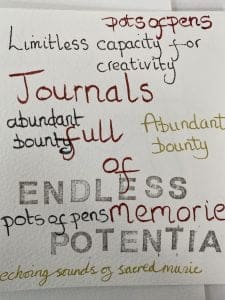 pots of pens
Limitless capacity for
creativity
Journals
abundant
bounty
full
Abundant
bounty
of
ENDLESS
pots of pens
memorie
POTENTIA
echoing sounds of sacred music